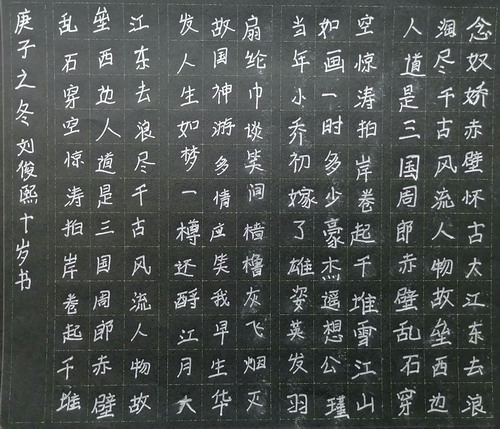 念奴娇赤壁怀古大江东去浪
淘尽千古风流人物故垒西边
人道是三国周郎赤壁乱石穿
空惊涛拍岸卷起千堆雪江山
如画一时多少豪杰遥想公瑾
当年小乔初嫁了雄姿英发羽
扇纶巾谈笑间樯橹灰飞烟灭
故国神游多情应笑我早生华
发人生如梦一樽还酹江月大
江东去浪尽千古风流人物故
垒西边人道是三国周郎赤壁
乱石穿空惊涛拍岸卷起千堆
庚子之冬刘俊熙十岁书